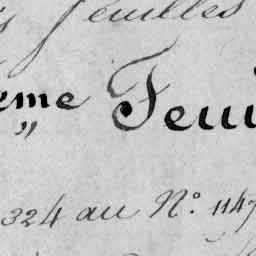 feuilles
eme Feui
"
324 au N.º 1147